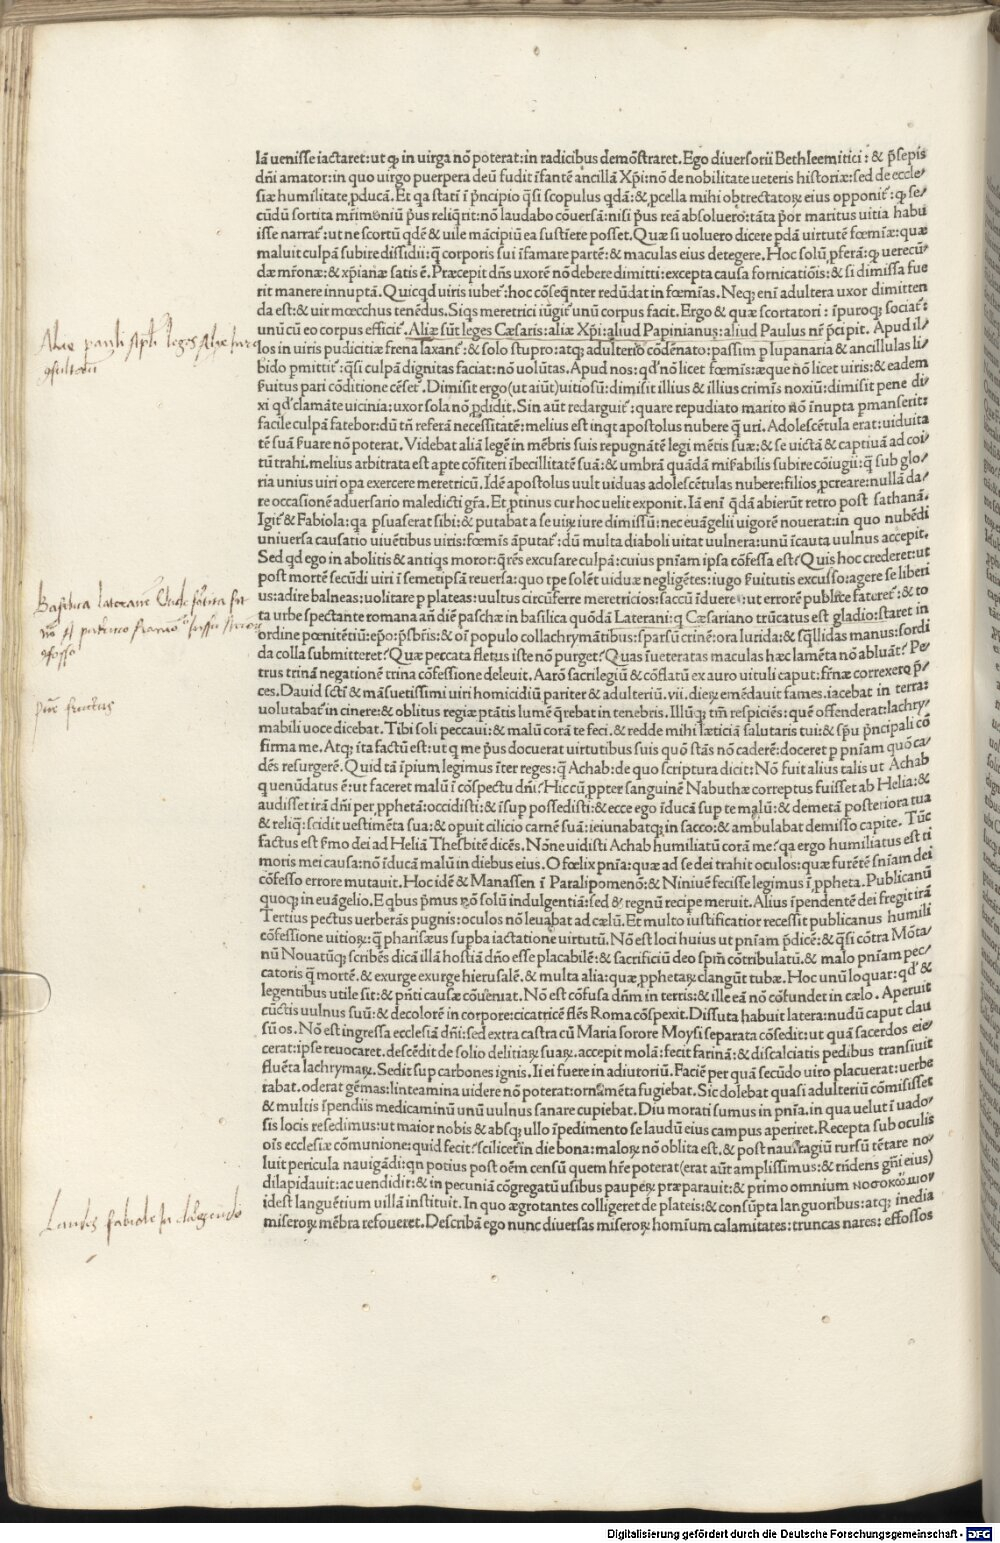 lã uenisse iactaret:ut qꝫ in uirga nõ poterat:in radicibus demõstraret.Ego diuersorii Bethleemitici:& p̃sepis
dñi amator:in quo uirgo puerpera deũ fudit ĩfantẽ ancillã Xp̃i:nõ de nobilitate ueteris historiæ:sed de eccle/
siæ humilitate ꝓducã.Et qa statĩ ĩ p̃ncipio q̃si scopulus qdã:& ꝓcella mihi obtrectatoꝝ eius opponit̃:qꝫ se/
cũdũ sortita mr̃imoniũ p̃us reliq̃rit:nõ laudabo cõuersã:nisi p̃us reã absoluero:tãta p̃or maritus uitia habu
isse narrat̃:ut ne scortũ qdẽ & uile mãcipiũ ea sustĩere posset.Quæ si uoluero dicere ꝑdã uirtutẽ fœmĩæ:quæ
maluit culpã subire dissidii:q̃ corporis sui ĩfamare partẽ:& maculas eius detegere.Hoc solũ ꝓferã:qꝫ uerecũ/
dæ mr̃onæ:& xp̃ianæ satis ẽ.Præcepit dñs uxorẽ nõ debere dimitti:excepta causa fornicatiõis:& si dimissa fue
rit manere innuptã.Quicqd uiris iubet̃:hoc cõseq̃nter redũdat in fœmĩas.Neqꝫ enĩ adultera uxor dimitten
da est:& uir mœcchus tenẽdus.Siqs meretrici iũgit̃ unũ corpus facit.Ergo & quæ scortatori:ĩpuroqꝫ sociat̃:
unũ cũ eo corpus efficit̃.Aliæ sũt leges Cæsaris:aliæ Xp̃i:aliud Papinianus:aliud Paulus nr̃ p̃cipit.Apud il/
los in uiris pudicitiæ frena laxant̃:& solo stupro:atqꝫ adulterio cõdẽnato:passim ꝑ lupanaria & ancillulas li/
bido ꝑmittit̃:q̃si culpã dignitas faciat:nõ uolũtas.Apud nos:qd̃ nõ licet fœmĩs:æque ñõ licet uiris:& eadem
ẜuitus pari cõditione cẽset̃.Dimisit ergo(ut aiũt)uitiosũ:dimisit illius & illius crimĩs noxiũ:dimisit pene di/
xi qd̃ clamãte uicinia:uxor sola nõ ꝓdidit.Sin aũt redarguit̃:quare repudiato marito nõ ĩnupta ꝑmanserit:
facile culpã fatebor:dũ tñ referã necessitatẽ:melius est inqt apostolus nubere q̃ uri.Adolescẽtula erat:uiduita
tẽ suã ẜuare nõ poterat.Videbat aliã legẽ in mẽbris suis repugnãtẽ legi mẽtis suæ:& se uictã & captiuã ad coi/
tũ trahi.melius arbitrata est apte cõfiteri ĩbecillitatẽ suã:& umbrã quãdã miẜabilis subire cõiugii:q̃ sub glo/
ria unius uiri opa exercere meretricũ.Idẽ apostolus uult uiduas adolescẽtulas nubere:filios ꝓcreare:nullã da/
re occasionẽ aduersario maledicti gr̃a.Et ꝓtinus cur hoc uelit exponit.Iã enĩ q̃dã abierũt retro post sathanã.
Igit̃ & Fabiola:qa ꝑsuaserat sibi:& putabat a se uiꝝ iure dimissũ:nec euãgelii uigorẽ nouerat:in quo nubẽdi
uniuersa causatio uiuẽtibus uiris:fœmĩs ãputat̃:dũ multa diaboli uitat uulnera:unũ ĩcauta uulnus accepit.
Sed qd ego in abolitis & antiqs moror:q̃rẽs excusare culpã:cuius pñĩam ipsa cõfessa est?Quis hoc crederet:ut
post mortẽ secũdi uiri ĩ semetipsã reuersa:quo tꝑe solẽt uiduæ negligẽtes:iugo ẜuitutis excusso:agere se liberi
us:adire balneas:uolitare ꝑ plateas:uultus circũferre meretricios:saccũ ĩduere:ut errorẽ publice fateret̃:& to
ta urbe spectante romana añ diẽ paschæ in basilica quõdã Laterani:q Cæsariano trũcatus est gladio:staret in
ordine pœnitẽtiũ:ep̃o:p̃sbr̃is:& oĩ populo collachrymãtibus:sparsũ crinẽ:ora lurida:& sq̃llidas manus:sordi
da colla submitteret?Quæ peccata fletus iste nõ purget?Quas ĩueteratas maculas hæc lamẽta nõ abluãt?Pe/
trus trinã negationẽ trina cõfessione deleuit.Aarõ sacrilegiũ & cõflatũ ex auro uituli caput:fr̃næ correxere p̃/
ces.Dauid scti & mãsuetissimi uiri homicidiũ pariter & adulteriũ.vii.dieꝝ emẽdauit fames.iacebat in terra:
uolutabat̃ in cinere:& oblitus regiæ ptãtis lumẽ q̃rebat in tenebris.Illũqꝫ tm̃ respiciẽs:quẽ offenderat:lachry/
mabili uoce dicebat.Tibi soli peccaui:& malũ corã te feci.& redde mihi lætitiã salutaris tui:& sp̃u p̃ncipali cõ
firma me.Atqꝫ ita factũ est:ut q me p̃us docuerat uirtutibus suis quõ stãs nõ caderẽ:doceret ꝑ pnĩam quõ ca/
dẽs resurgerẽ.Quid tã ĩpium legimus ĩter reges:q̃ Achab:de quo scriptura dicit:Nõ fuit alius talis ut Achab
q uenũdatus ẽ:ut faceret malũ ĩ cõspectu dñi?Hic cũ ꝓpter sanguinẽ Nabuthæ correptus fuisset ab Helia:&
audisset irã dñi per ꝓphetã:occidisti:& ĩsup possedisti:& ecce ego ĩducã sup te malũ:& demetã posteriora tua
& reliq̃:scidit uestimẽta sua:& opuit cilicio carnẽ suã:ieiunabatqꝫ in sacco:& ambulabat demisso capite.Tũc
factus est ẜmo dei ad Heliã Thesbitẽ dicẽs.Nõne uidisti Achab humiliatũ corã me?qa ergo humiliatus est ti
moris mei causa:nõ ĩducã malũ in diebus eius.O fœlix pnĩa:quæ ad se dei trahit oculos:quæ furẽtẽ snĩam dei
cõfesso errore mutauit.Hoc idẽ & Manassen ĩ Paralipomenõ:& Niniuẽ fecisse legimus ĩ ꝓpheta.Publicanũ
quoqꝫ in euãgelio.E qbus p̃mus nõ solũ indulgentiã:sed & regnũ recipe meruit.Alius ĩpendentẽ dei fregit irã
Tertius pectus uerberãs pugnis:oculos nõ leuabat ad cælũ.Et multo iustificatior recessit publicanus humili
cõfessione uitioꝝ:q̃ pharisæus supba iactatione uirtutũ.Nõ est loci huius ut pnĩam p̃dicẽ:& q̃si cõtra Mõta/
nũ Nouatũqꝫ scribẽs dicã illã hostiã dño esse placabilẽ:& sacrificiũ deo spm̃ cõtribulatũ.& malo pnĩam pec/
catoris q̃ mortẽ.& exurge exurge hierusalẽ.& multa alia:quæ ꝓphetaꝝ clangũt tubæ.Hoc unũ loquar:qd̃ &
legentibus utile sit:& p̃nti causæ cõueniat.Nõ est cõfusa dñm in terris:& ille eã nõ cõfundet in cælo.Aperuit
cũctis uulnus suũ:& decolorẽ in corpore:cicatricẽ flẽs Roma cõspexit.Dissuta habuit latera:nudũ caput clau
sũ os.Nõ est ingressa ecclesiã dñi:sed extra castra cũ Maria sorore Moysi separata cõsedit:ut quã sacerdos eie/
cerat:ipse reuocaret.descẽdit de solio delitiaꝝ suaꝝ.accepit molã:fecit farinã:& discalciatis pedibus transiuit
fluẽta lachrymaꝝ.Sedit sup carbones ignis.Ii ei fuere in adiutoriũ.Faciẽ per quã secũdo uiro placuerat:uerbe
rabat.oderat gẽmas:linteamina uidere nõ poterat:ornamẽta fugiebat.Sic dolebat quasi adulteriũ cõmisisset
& multis ĩpendiis medicaminũ unũ uulnus sanare cupiebat.Diu morati sumus in pnĩa.in qua uelut ĩ uado/
sis locis resedimus:ut maior nobis & absqꝫ ullo ĩpedimento se laudũ eius campus aperiret.Recepta sub oculis
oĩs ecclesiæ cõmunione:quid fecit?scilicet ĩn die bona:maloꝝ nõ oblita est.& post naufragiũ rursũ tẽtare no/
luit pericula nauigãdi:qn potius post oẽm censũ quem hr̃e poterat(erat aũt amplissimus:& rñdens gñi eius)
dilapidauit:ac uendidit:& in pecuniã cõgregatũ usibus paupeꝝ præparauit:& primo omnium νοσοκωμιον
idest languẽtium uillã instituit.In quo ægrotantes colligeret de plateis:& consũpta languoribus:atqꝫ inedia
miseroꝝ mẽbra refoueret.Describã ego nunc diuersas miseroꝝ homĩum calamitates:truncas nares:effossos
Aliæ pauli Apli leges Aliæ Iurec
gsultorũ
Basilica lateranẽ
Laudes fabiolæ In
Digitalisierung gefördert durch die Deutsche Forschungsgemeinschaft - DFG